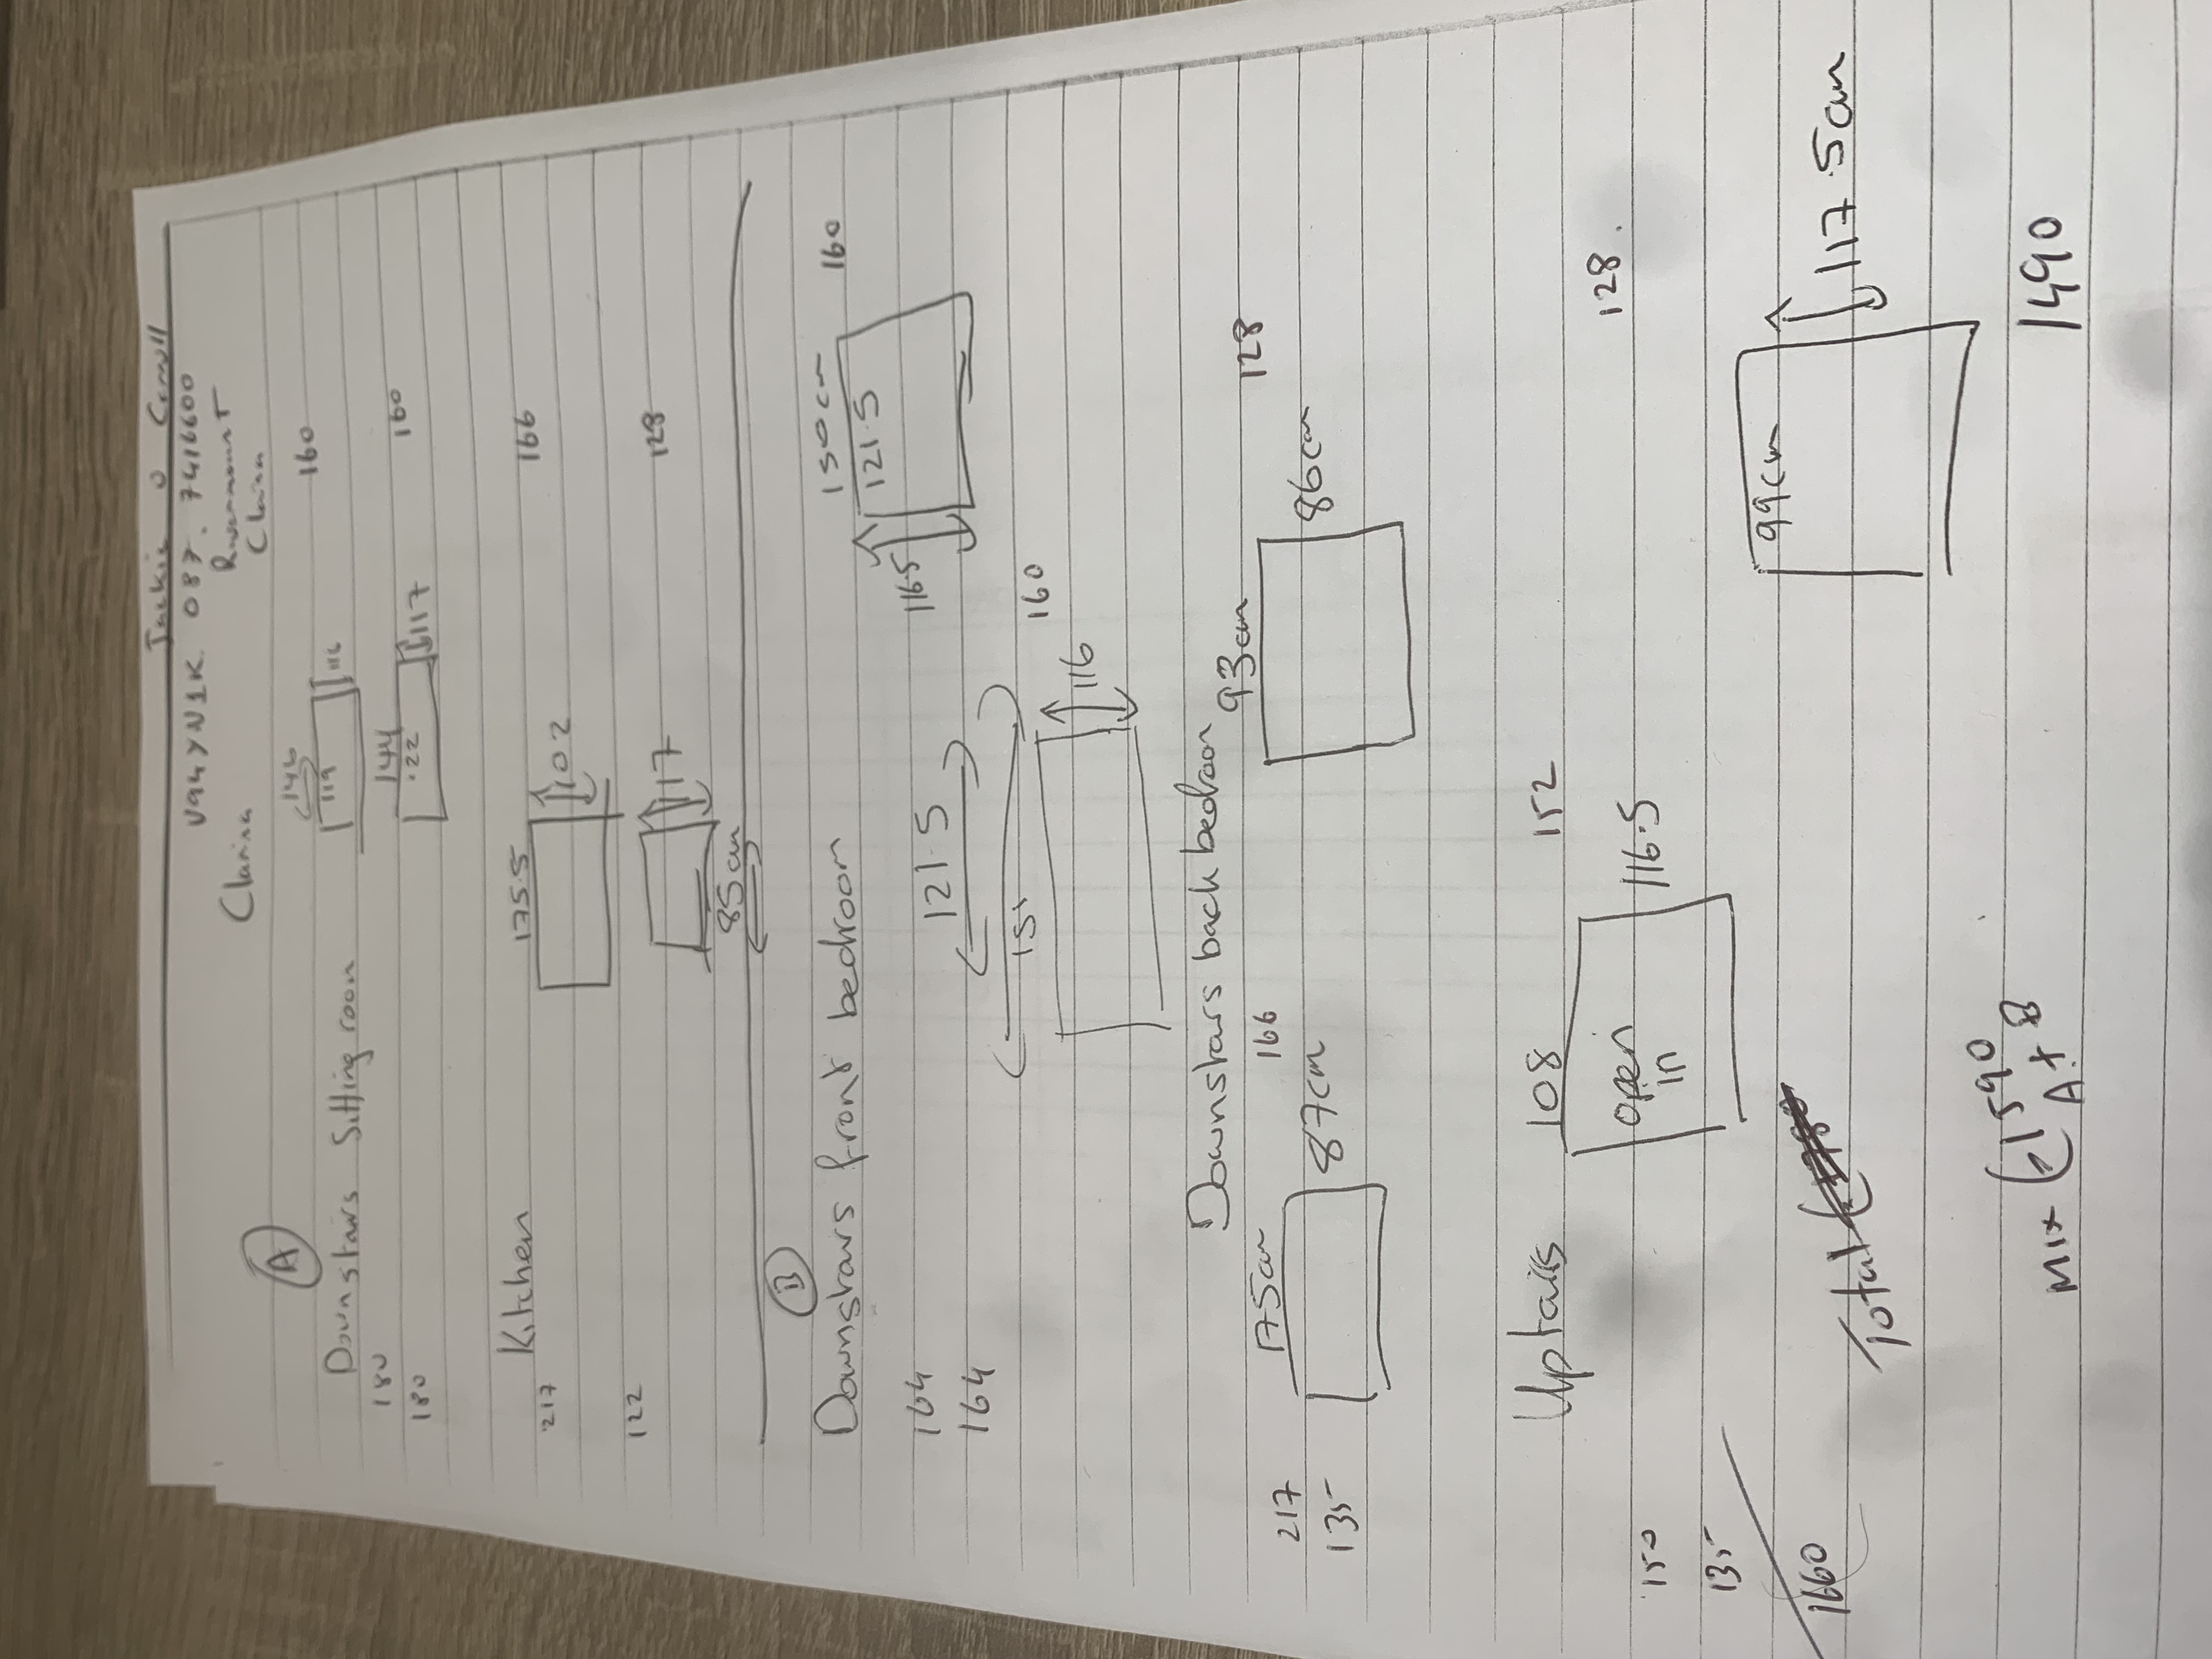 Jackie O
V94YN1K 087. 7416600
Clarina
A
Downstairs Sitting room
146
119
116
160
180
144
.22
117
160
180
Kitchen
175.5
102
166
217
117
128
122
85cm
B
Downstairs front bedroom
150cm
160
121.5
116.5
164
121.5
164
151
160
116
Downstairs back bedroom
93cm
128
175cm
166
87cm
86cm
217
135
Uptails
108
152
128.
open
in
116.5
150
135
99cm
117.5cm
1660
Total
1490
Mix €1590
A + B